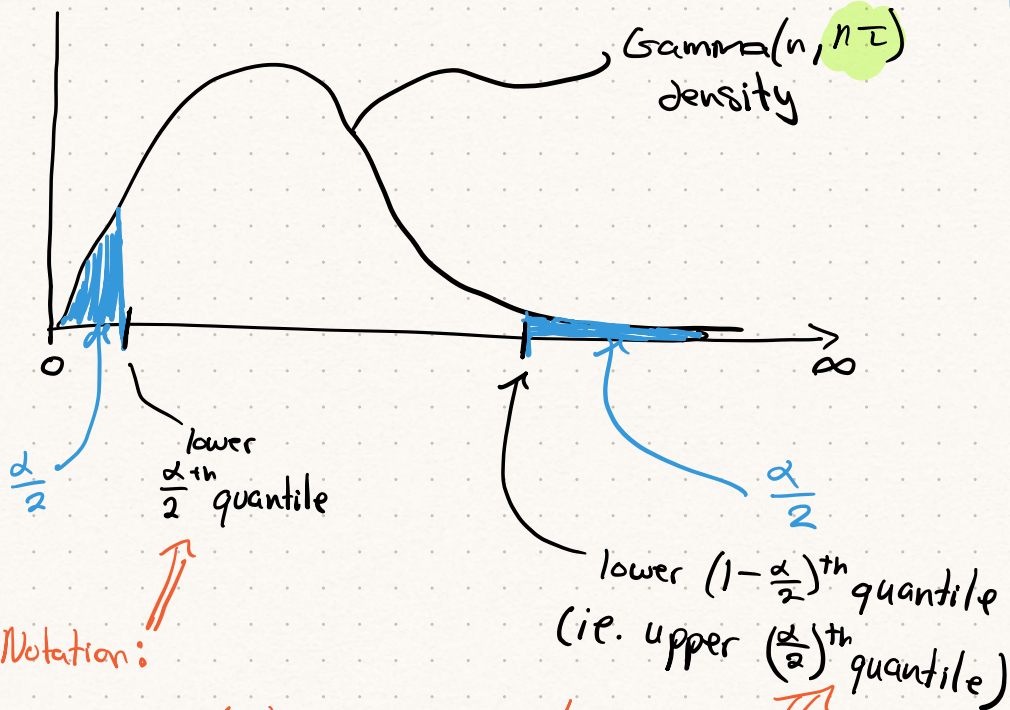 Gamma(n, n τ)
density
0
∞
α/2
lower
α/2 th quantile
α/2
lower (1 - α/2)th quantile
(ie. upper (α/2)th quantile)
Notation: